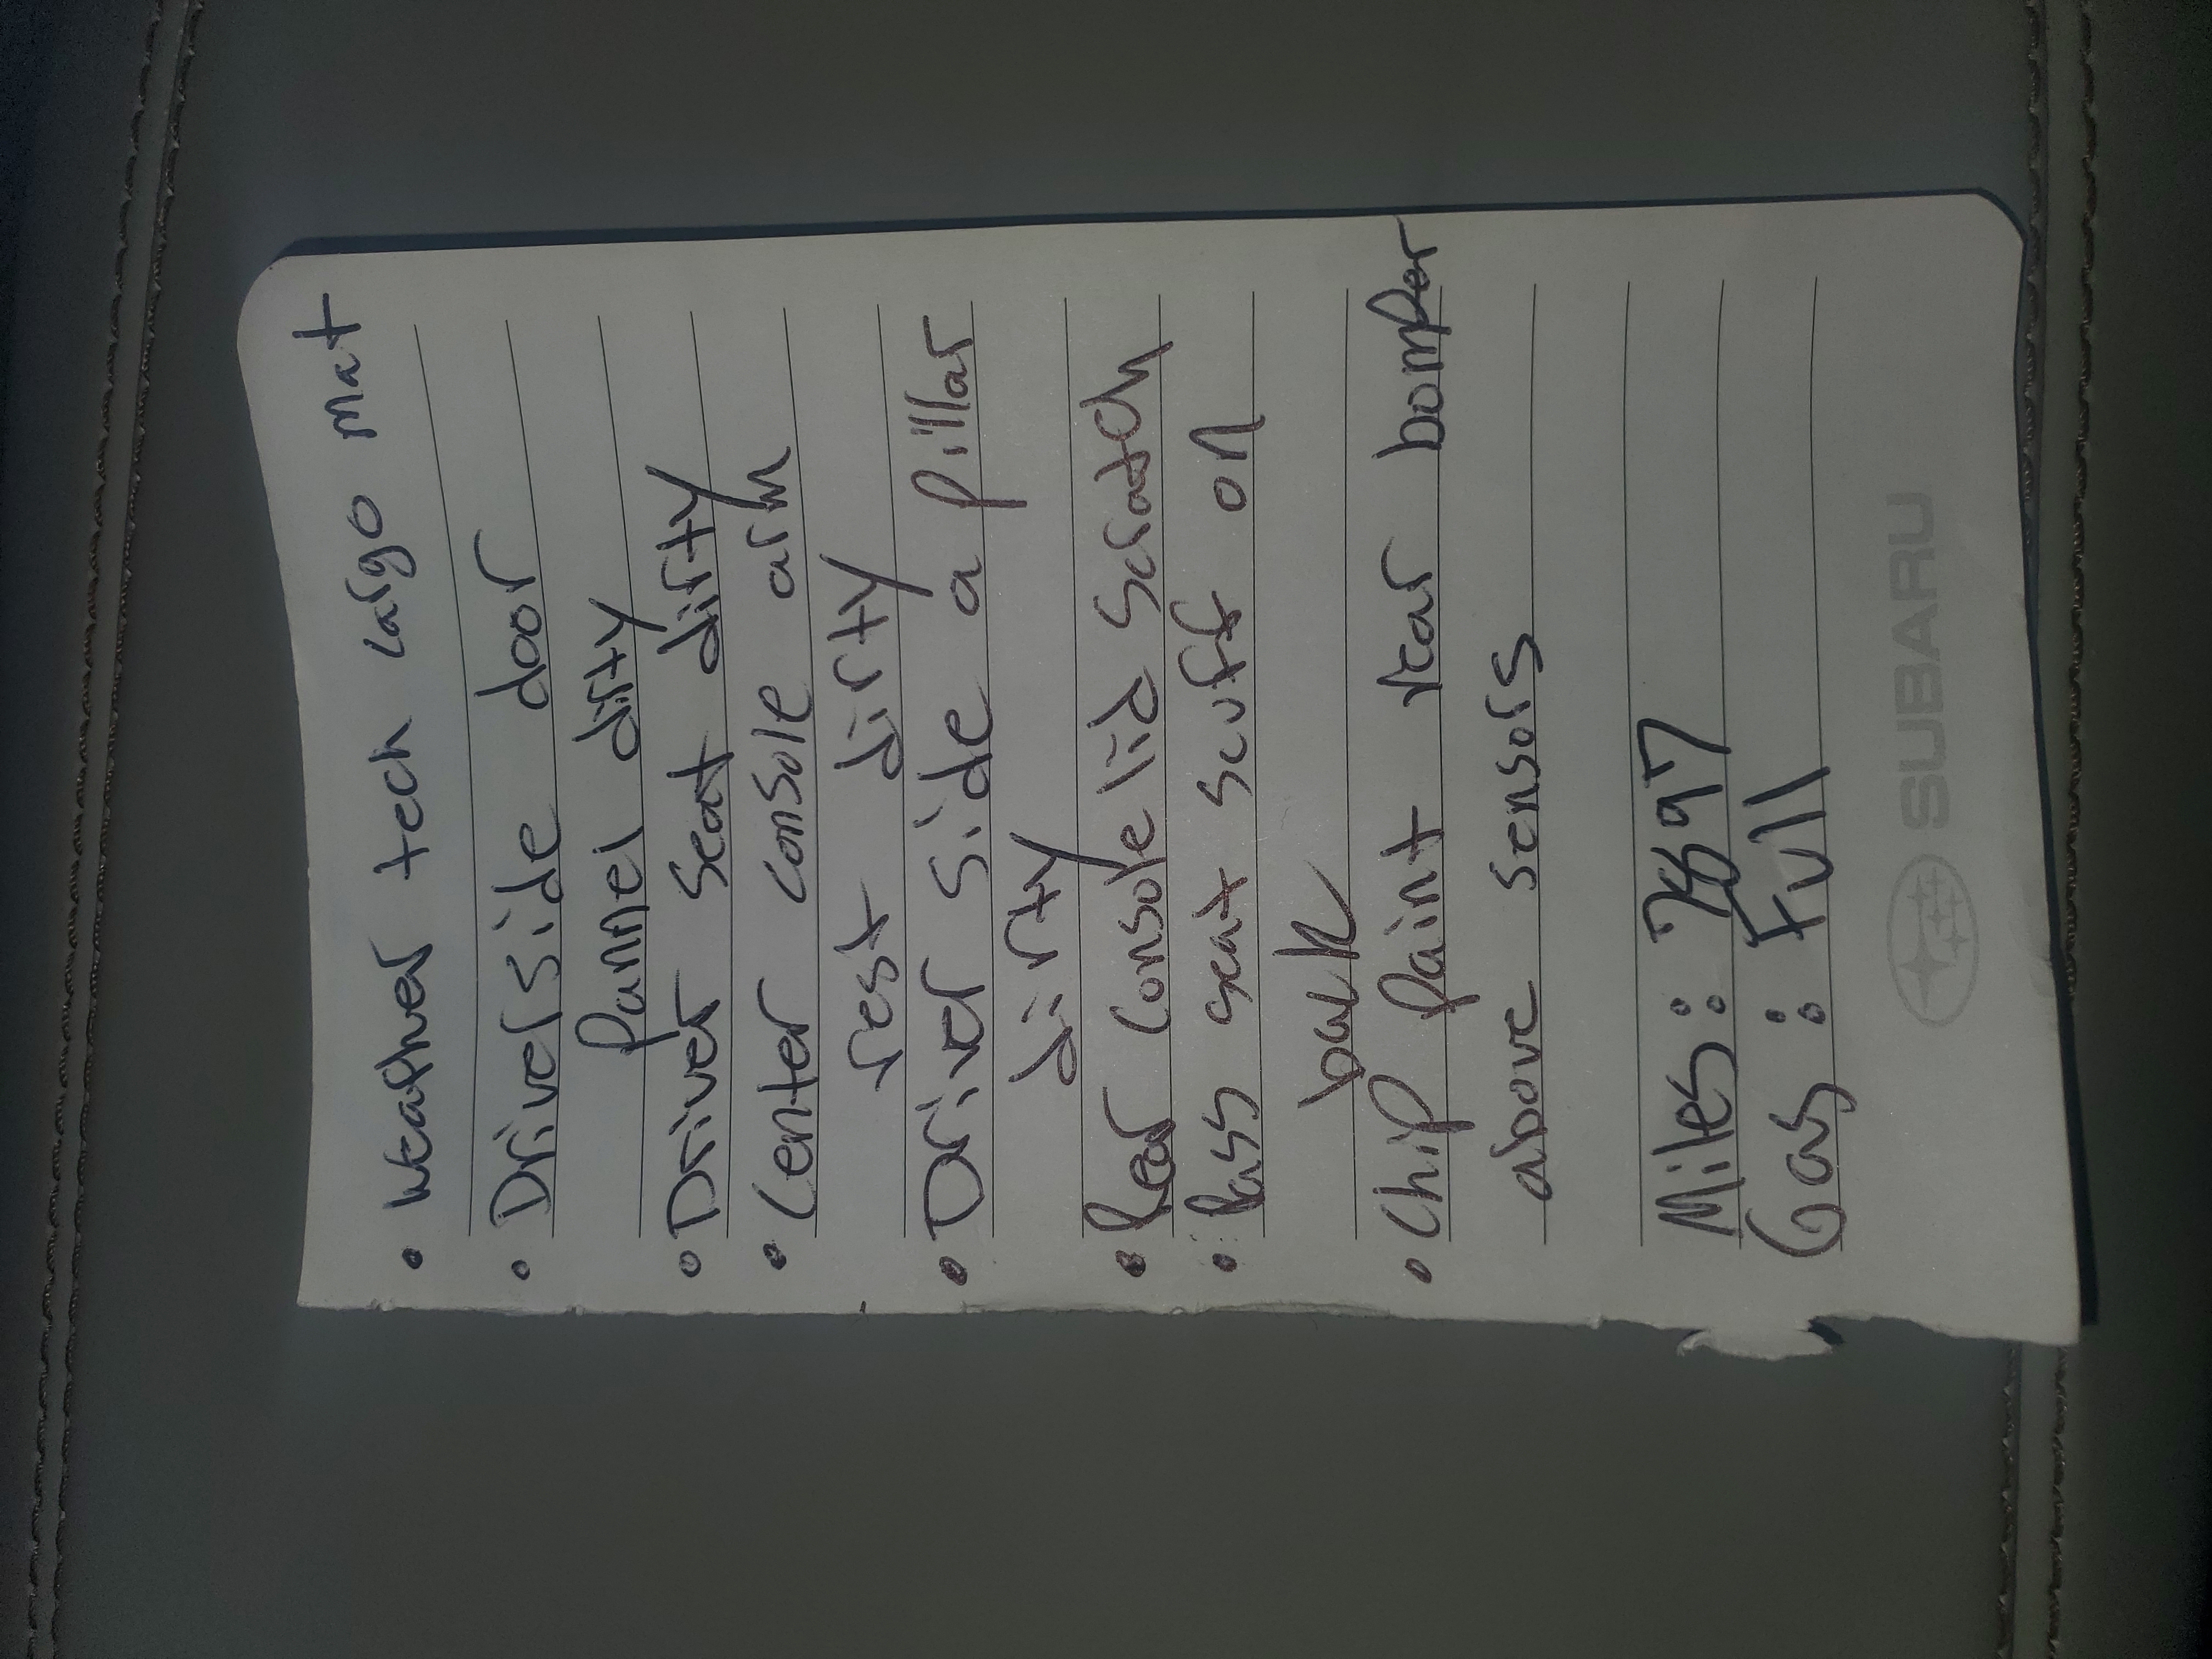 • Weather tech cargo mat
• Driver side door
pannel dirty
• Driver seat dirty
• Center console arm
rest dirty
• Driver side a pillar
dirty
• Rear console lid scratch
• Pass seat scuff on
back
• Chip paint rear bomper
above sensors
Miles:
Gas: Full
SUBARU